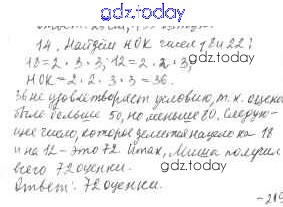 gdz.today
14. Найдём НОК чисел 18 и 12:
18 = 2 · 3 · 3; 12 = 2 · 2 · 3;
НОК = 2 · 2 · 3 · 3 = 36.
36 не удовлетворяет условию, т. к. оценок
было больше 50, но меньше 80. Следую-
щее число, которое делится нацело на 18
и на 12 - это 72. Итак, Миша получил
всего 72 оценки.
Ответ: 72 оценки.
gdz.today